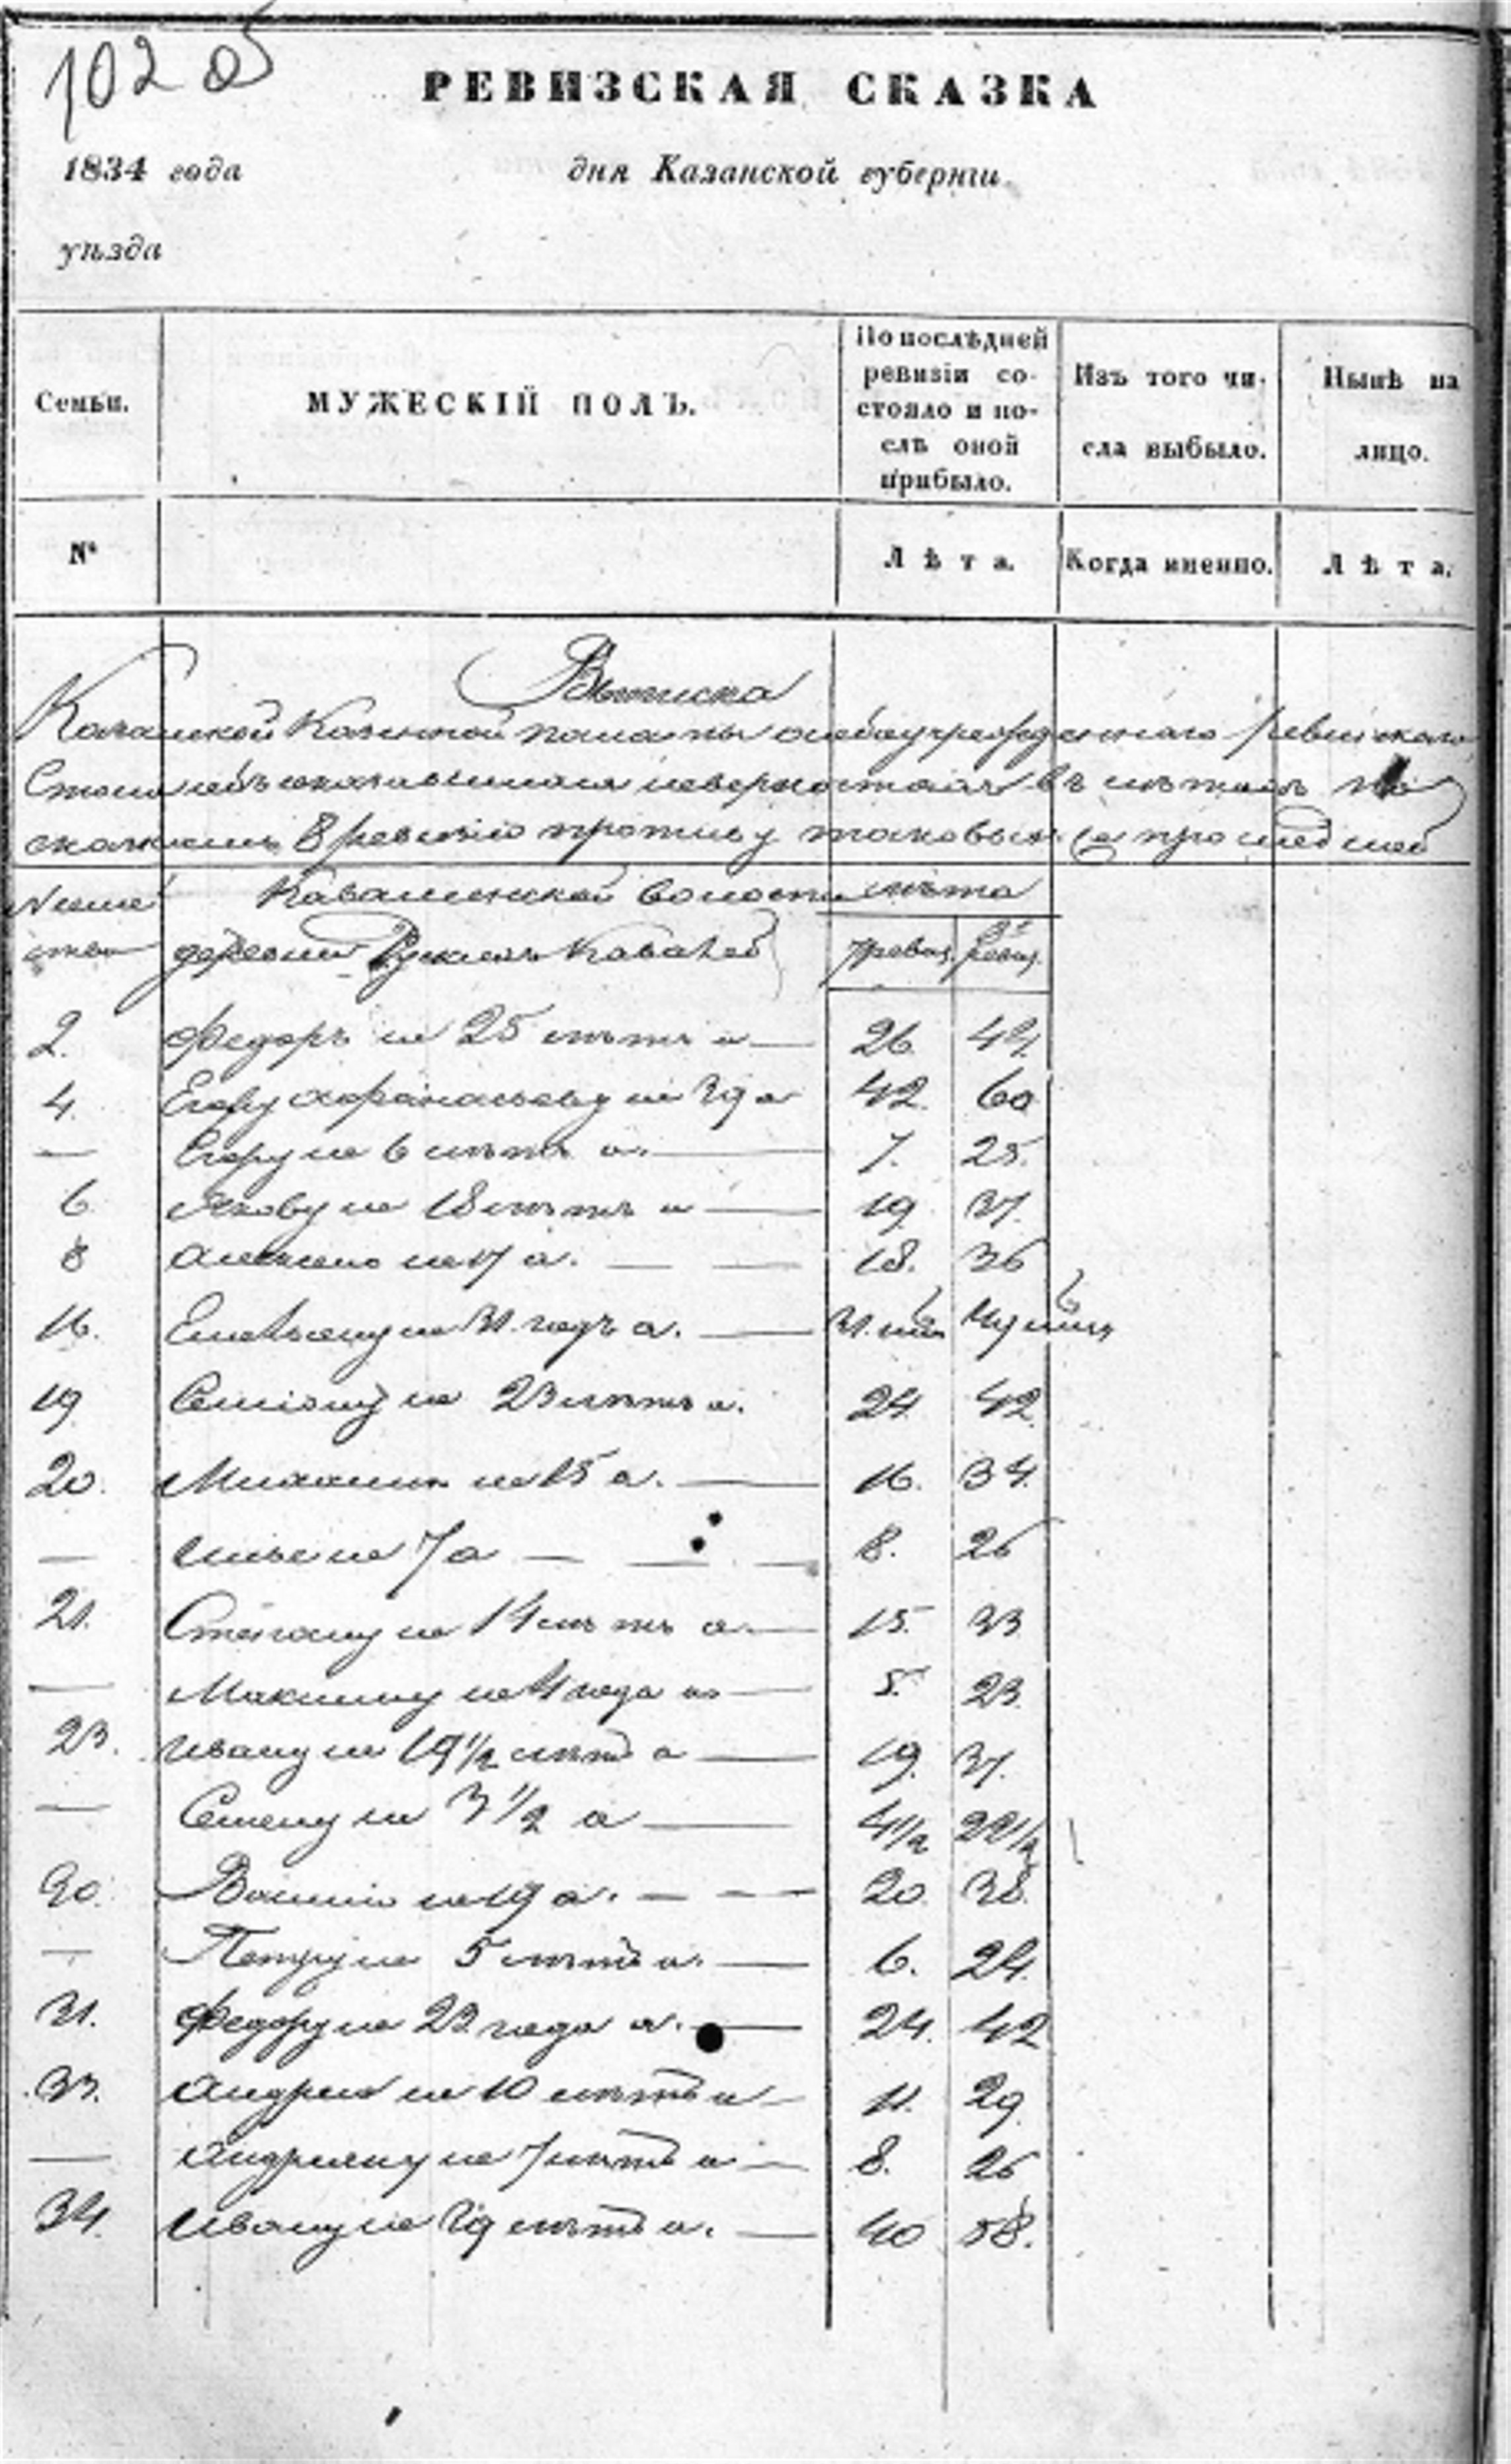 102 об
РЕВИЗСКАЯ СКАЗКА
1834 года дня Казанской губерніи
уѣзда
Семьи. МУЖЕСКІЙ ПОЛЪ. По послѣдней ревизіи состояло и послѣ оной прибыло. Изъ того числа выбыло. Нынѣ на лицо.
№ Лѣта. Когда именно. Лѣта.
Выписка
Казанской Казенной палаты особо учрежденнаго ревизскаго
Стола объ оказавшихся неверностяхъ въ летахъ по
сказкамъ 8 ревизіи противу таковыхъ прошедшей
Ковалинской волости лѣта
деревни Русскихъ 7 ревиз. 8й ревиз.
2. Федоръ не 25 лѣтъ а 26 44.
4. Егору Афонасьеву не 39 а 42. 60
— Егору не 6 лѣтъ а. 7. 25.
6 Якову не 18 лѣтъ а 19. 37.
8 Алексею не 17 а. 18. 36
16. не 31 годъ а.
19. Семіону не 23 лѣтъ а. 24. 42.
20. Михаилъ не 15 а. 16. 34.
— Илье не 7 а 8. 26
21. Степану не 14 лѣтъ а 15. 33
— Максиму не 4 года а 5. 23.
23. Ивану не 19 1/2 лѣтъ а 19. 37.
— Семену не 3 1/2 а 4 1/2 22 1/2
30. Василію не 19 а. 20. 38.
— Петру не 5 лѣтъ а. 6. 24.
31. Федору не 23 года а. 24. 42
33. Андрею не 10 лѣтъ а 11. 29.
— Андреяну не 7 лѣтъ а 8. 26
34. Ивану не 39 лѣтъ а. 40 58.